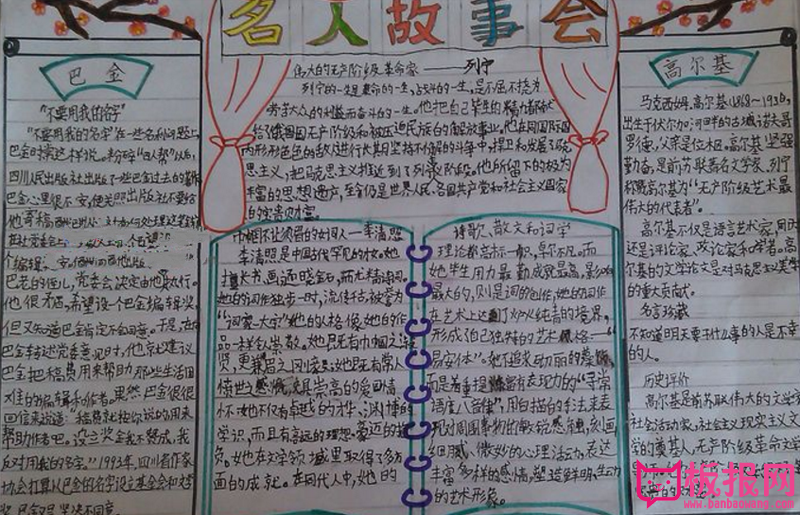 名人故事会
巴金
"不要用我的名字"
"不要用我的名字"在一些名利问题上,
巴金时常这样说。粉碎"四人帮"以后,
四川人民出版社出版了一些巴金过去的著作
巴金心里很不安,便关照出版社不要给
他寄稿
巴老的侄儿,党委会决定由他执行。
他很为难,希望设一个巴金编辑奖,
但又知道巴金肯定不会同意。于是,在向
巴金转述党委意见时,他就建议
巴金把稿费用来帮助那些生活困
难的编辑和作者。果然,巴金很快
回信来说道:"稿费就按你说的用来
帮助作者吧。设立奖金我不赞成,我
反对用我的名字。"1993年,四川省作家
协会打算以巴金的名字设立基金会和文学
奖,巴金又坚决不同意。
伟大的无产阶级革命家——列宁
列宁的一生是革命的一生,战斗的一生,是不屈不挠为
劳苦大众的利益而奋斗的一生。他把自己毕生的精力都献
给俄国无产阶级和被压迫民族的解放事业,他在同国际国
内形形色色的敌人进行长其日坚持不懈的斗争中,捍卫和发展了马克
思主义,把马克思主义推进到了列宁阶段。他所留下的极为
丰富的思想遗产,至今仍是世界人民、各国共产党和社会主义国家
的宝贵财富。
巾帼不让须眉的女词人—李清照
李清照是中国古代罕见的才女,她
擅长书、画,通晓金石,而尤精诗词。
她的词作独步一时,流传千古,被誉为
"词家一大宗"她的人格像她的作
品一样令人崇敬。她既有巾帼之淑
贤,更兼须眉之刚毅;她既有常人
愤世之感慨,又具崇高的爱国情
怀。她不仅有卓越的才华,渊博的
学识,而且有高远的理想,豪迈的抱
负。她在文学领域里取得了多方
面的成就。在同代人中,她的
诗歌、散文和词学
理论都高标一帜,卓尔不凡。而
她毕生用力最勤,成就最高,影响
最大的,则是词的创作。她的词作
在艺术上达到了炉火纯青的境界,
形成了自己独特的艺术风格——"
易安体"。她不追求砌丽的藻饰,
而是着重提炼富有表现力的"寻常
语度八音律",用白描的手法来表
现对周围事物的敏锐感触,刻画
细腻、微妙的心理活动,表达
丰富多样的感情,塑造鲜明、生动
的艺术形象。
高尔基
马克西姆·高尔基(1868~1936),
出生于伏尔加河畔的古城诺夫哥
罗德,父亲是位木匠。高尔基坚强
勤奋,是前苏联著名文学家,列宁
称赞高尔基为"无产阶级艺术最
伟大的代表者"。
高尔基不仅是语言艺术家,同时
还是评论家、政论家和学者。高尔
基的文学论文是对马克思主义美学
的重大贡献。
名言珍藏
不知道明天要干什么事的人是不幸
的人。
历史评价
高尔基是前苏联伟大的文学家,
社会活动家,社会主义现实主义文
学的奠基人,无产阶级革命文学
板报网
www.banbaowang.com